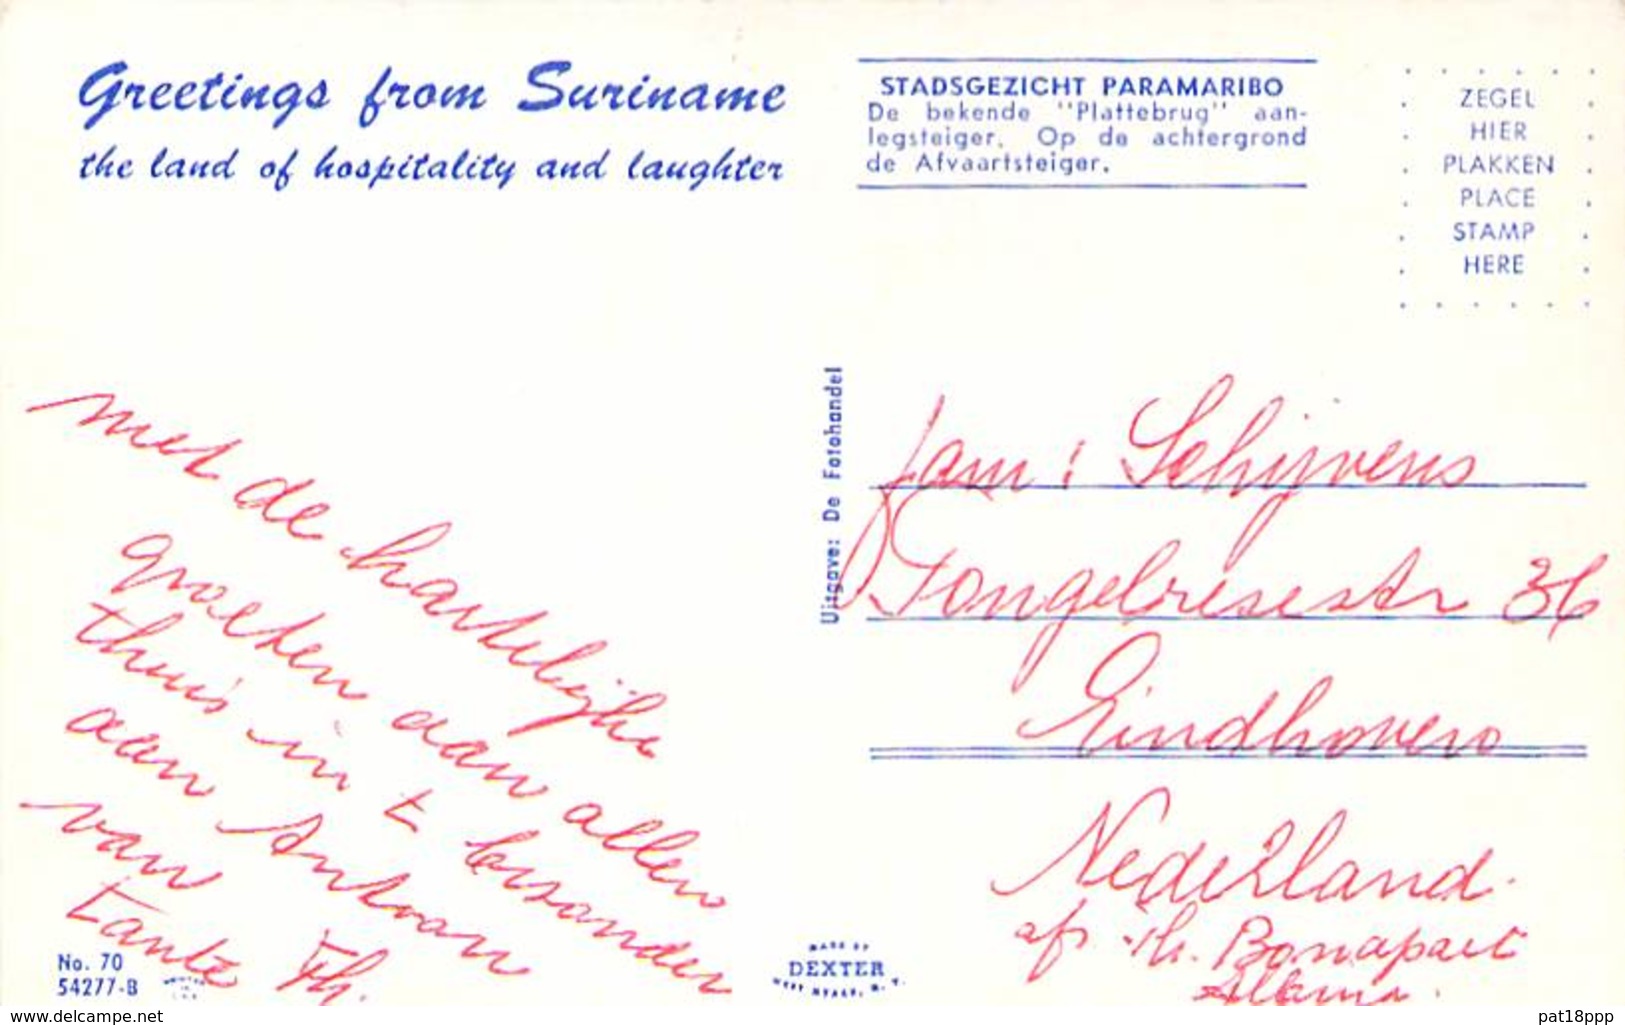 Greetings from Suriname
the land of hospitality and laughter
STADSGEZICHT PARAMARIBO
De bekende "Plattebrug" aan-
legsteiger. Op de achtergrond
de Afvaartsteiger.
ZEGEL
HIER
PLAKKEN
PLACE
STAMP
HERE
met de hartelijke
groeten aan allen
thuis in t bezonder
aan Antoon
van
tante Th.
Uitgave: De Fotohandel
fam: Schijvens
Tongelresestr 36
Eindhoven
Nederland.
afs. Th. Bonapart
No. 70
54277-B
MADE BY
DEXTER
WEST NYACK, N. Y.
www.delcampe.net
pat18ppp